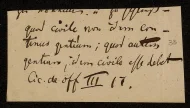 quod civile non idem con-
tinuo gentium; quod autem
gentium, idem civile esse debet
Cic. de off III 17.